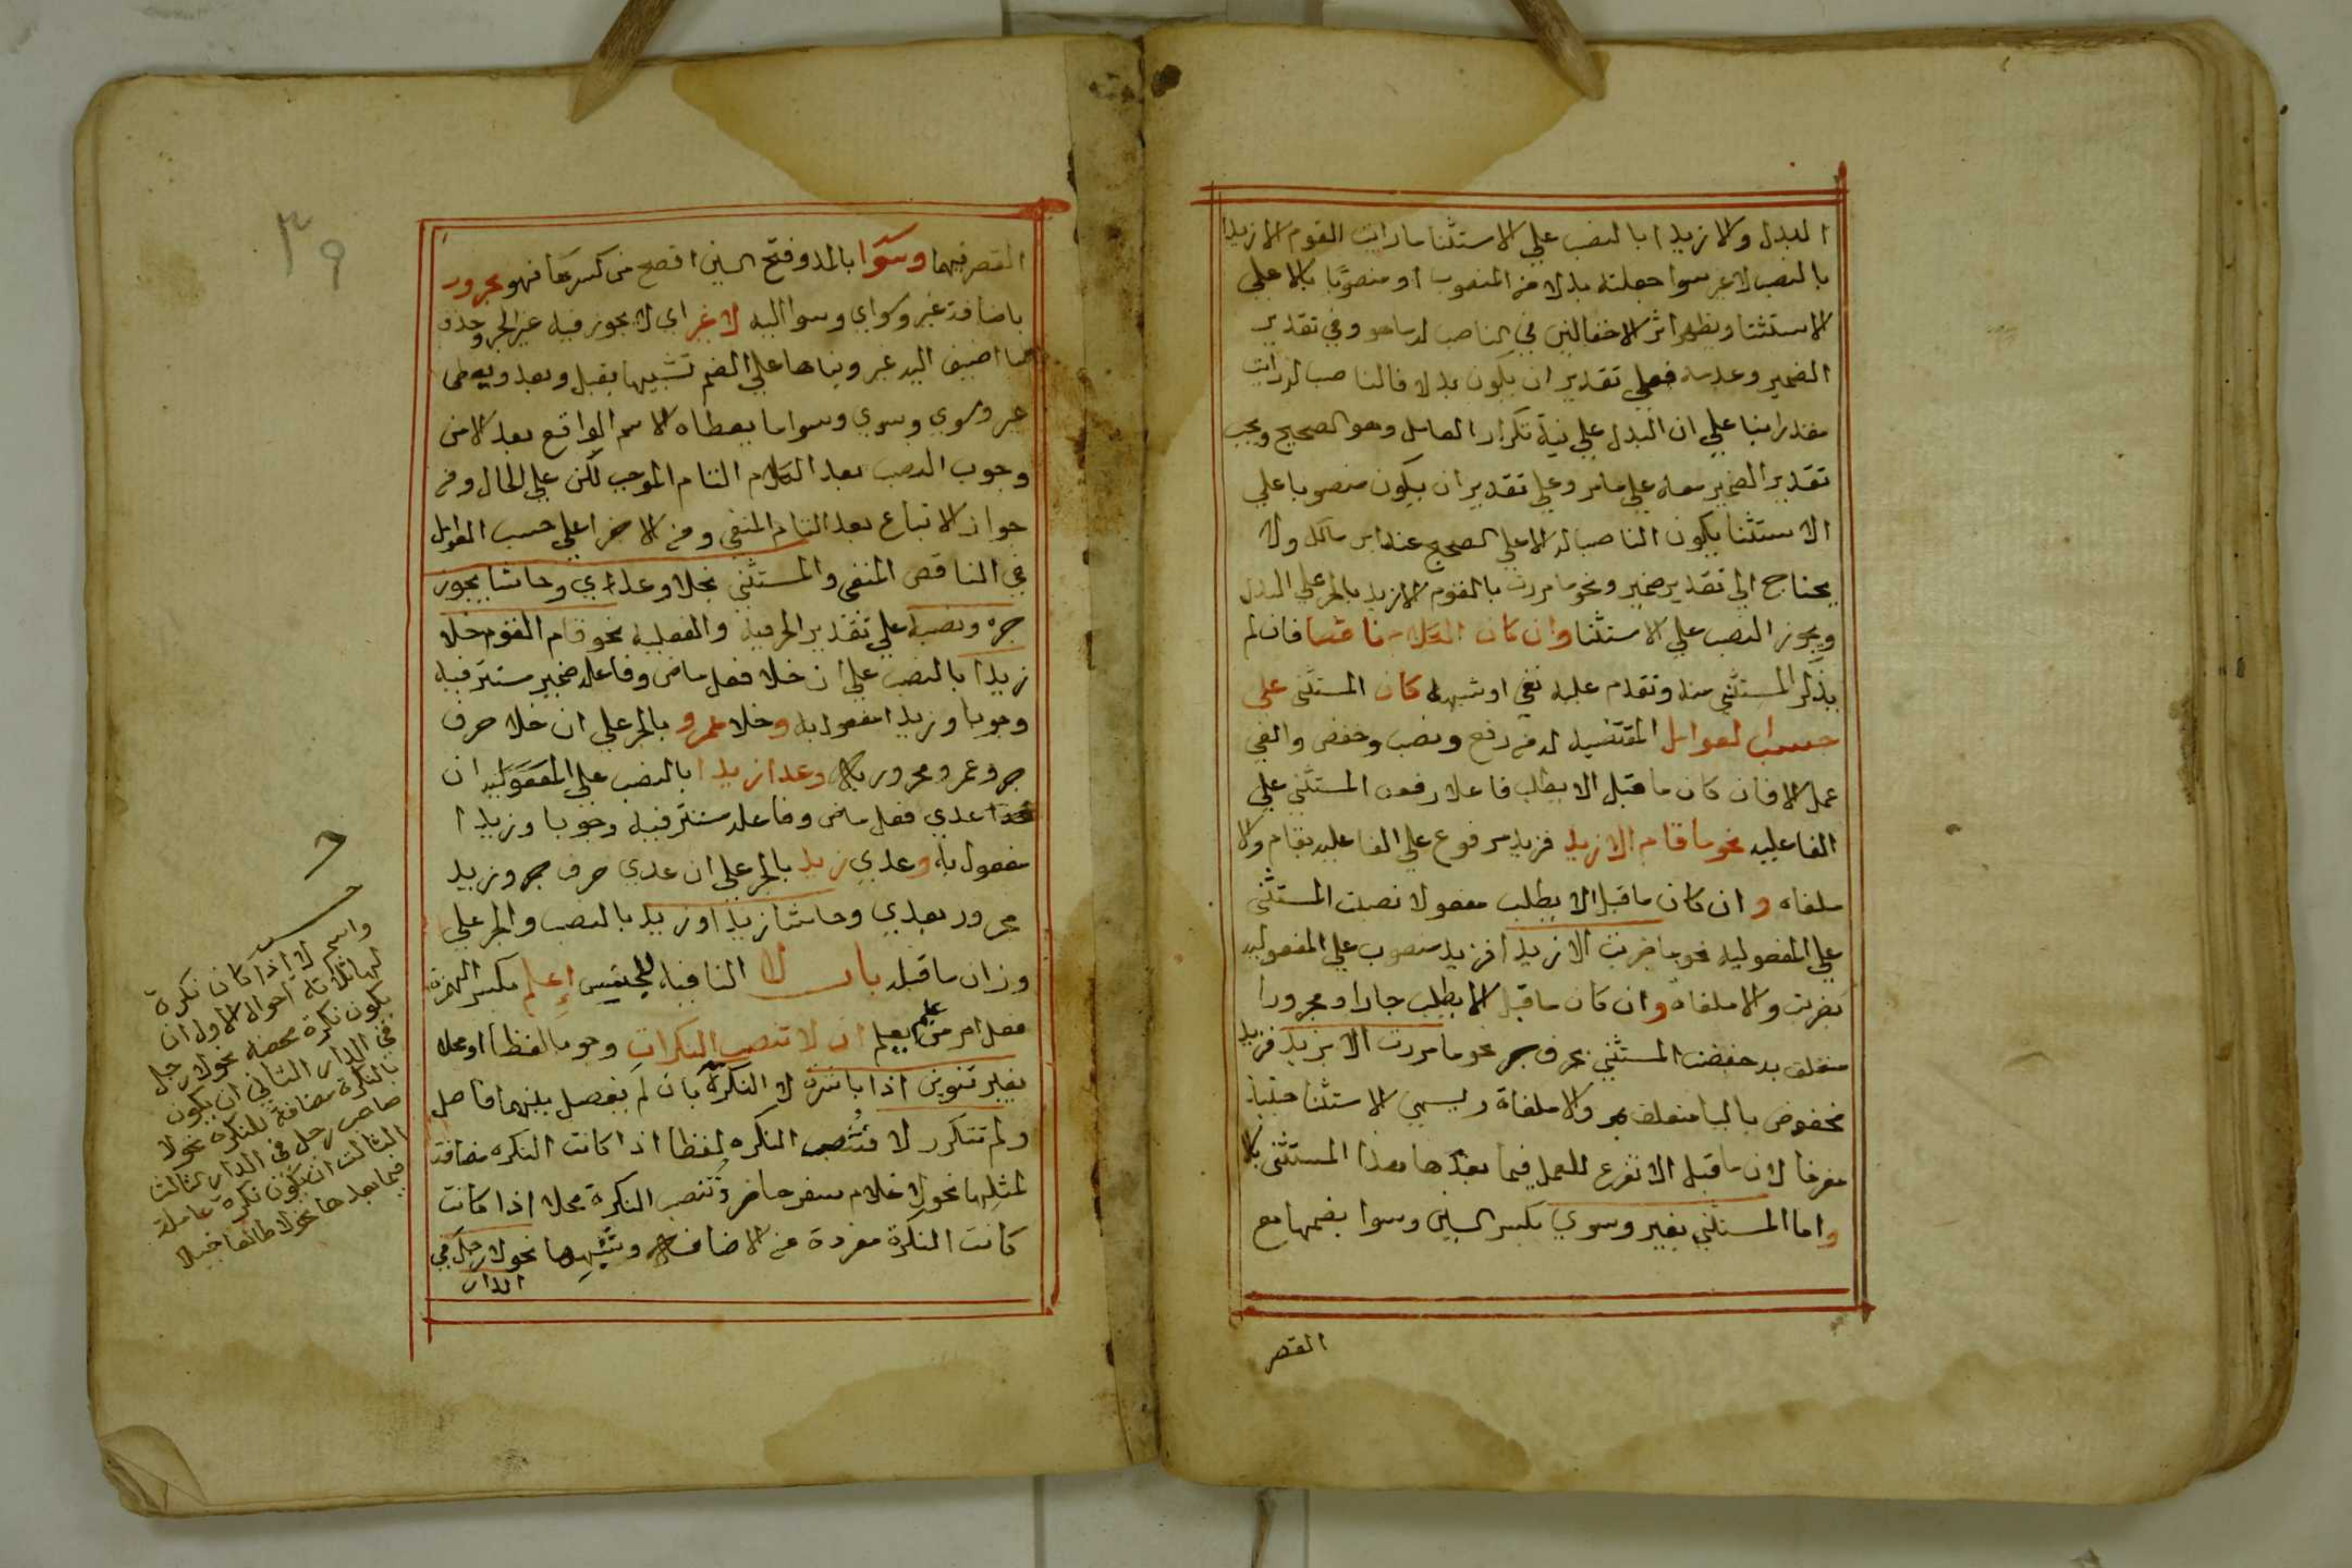 البدل والا زيدا بالنصب علي الاستثنا ما رايت القوم الا زيدا
بالنصب لا غير سوا جعلته بدلا من المنصوب او منصوبا بالا علي
الاستثنا ويظهر اثر الاختلاف في الناصب له ما هو وفي تقدير
الضمير وعدمه فعلي تقدير ان يكون بدلا فالناصب له رايت
مقدرا بنا علي ان البدل علي نية تكرار العامل وهو الصحيح ويجب
تقدير الضمير معه علي ما مر وعلي تقدير ان يكون منصوبا علي
الاستثنا يكون الناصب له الا علي الصحيح عند ابن مالك ولا
يحتاج الي تقدير ضمير ونحو ما مررت بالقوم الا زيد بالجر علي البدل
ويجوز النصب علي الاستثنا وان كان الكلام ناقصا فان لم
يذكر المستثني منه وتقدم عليه نفي او شبهه كان المستثني علي
حسب العوامل المقتضيه له من رفع ونصب وخفض والغي
عمل الا فان كان ما قبل الا يطلب فاعلا رفعت المستثني علي
الفاعليه نحو ما قام الا زيد فزيد مرفوع علي الفاعليه بقام والا
ملغاه وان كان ما قبل الا يطلب مفعولا نصبت المستثني
علي المفعوليه نحو ما ضربت الا زيدا فزيد منصوب علي المفعوليه
بضربت والا ملغاة وان كان ما قبل الا يطلب جارا ومجرورا
متعلق به خفضت المستثني بحرف جر نحو ما مررت الا بزيد فزيد
مخفوض بالبا متعلق بمر والا ملغاة ويسمي الاستثنا حينيذ
مفرغا لان ما قبل الا تفرغ للعمل فيما بعدها هذا المستثني بالا
واما المستثني بغير وسوي بكسر السين وسوا بضمها مع
القصر
٣٩
القصر فيهما وسوا بالمد وفتح السين افصح من كسرها فهو مجرور
باضافة غير وسواي وسوا اليه لا غير اي لا يجوز فيه غير الجر وحذف
ما اضيف اليه غير وبناها علي الضم تشبيها بقبل وبعد ويعطي
غير وسوي وسوي وسوا ما يعطاه الاسم الواقع بعد الا من
وجوب النصب بعد الكلام التام الموجب لكن علي الحال ومن
جواز الاتباع بعد التام المنفي ومن الاجرا علي حسب العوامل
في الناقص المنفي والمستثني بخلا وعدا اي وحاشا يجوز
جره ونصبه علي تقدير الحرفيه والفعليه نحو قام القوم خلا
زيدا بالنصب علي ان خلا فعل ماض وفاعله ضمير مستتر فيه
وجوبا وزيدا مفعول به وخلا عمرو بالجر علي ان خلا حرف
جر وعمرو مجرور به وعدا زيدا بالنصب علي المفعوليه ان
عدي فعل ماض وفاعله مستتر فيه وجوبا وزيدا
مفعول به وعدي زيد بالجر علي ان عدي حرف جر وزيد
مجرور بعدي وحاشا زيدا وزيد بالنصب والجر علي
وزان ما قبله باب لا النافية للجنس إعلم بكسر الهمزة
فعل امر من علم يعلم ان لا تنصب النكرات وجوبا لفظا او محلا
بغير تنوين اذا باشرت لا النكرة بان لم يفصل بينهما فاصل
ولم تتكرر لا فتنصب النكره لفظا اذا كانت النكره مضافة
لمثلها نحو لا غلام سفر حاضر وتنصب النكرة محلا اذا كانت
كانت النكرة مفردة عن الاضافه وشبهها نحو لا رجل في
الدار
واسم لا اذا كان نكرة
لها ثلاثة احوال الاول ان
يكون نكرة محضه نحو لا رجل
في الدار الثاني ان يكون
بالنكرة مضافة للنكره نحو لا
صاحب رجل في الدار الثالث
الثالث ان يكون نكرة عاملة
فيما بعدها نحو لا طالعا جبلا